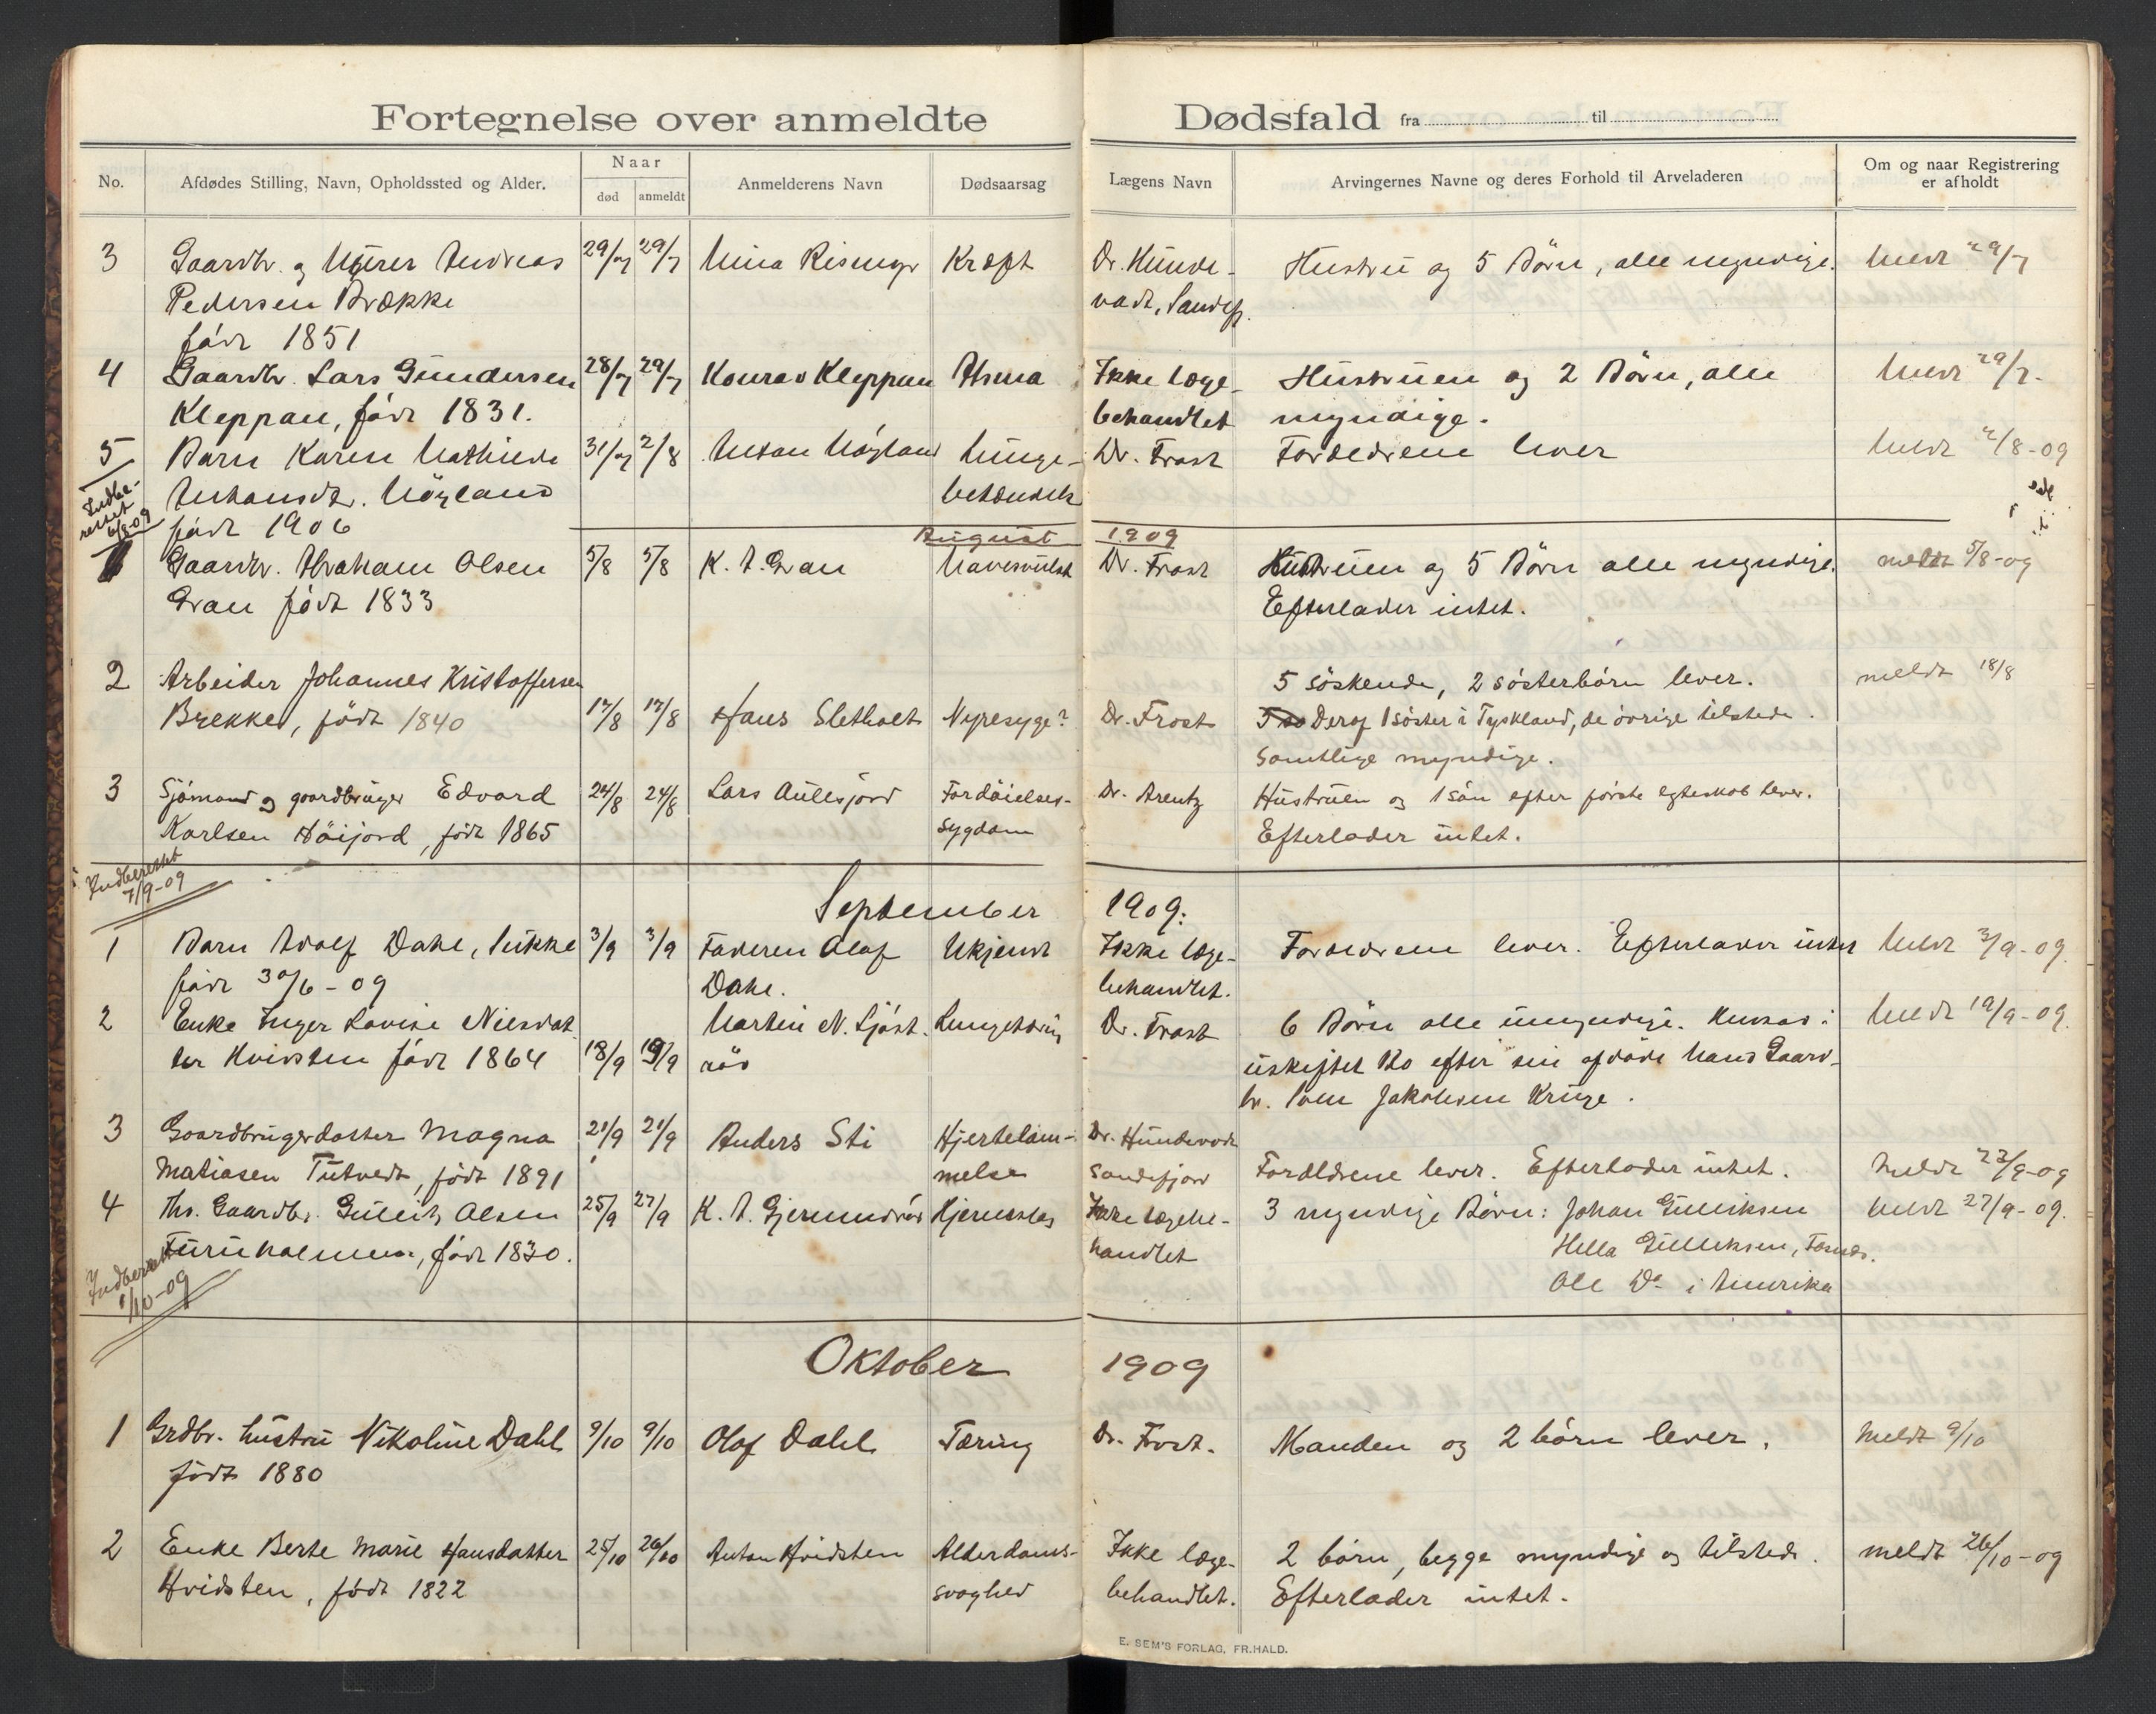 Fortegnelse over anmeldte Dødsfald fra til
No. Afdødes Stilling, Navn, Opholdssted og Alder. Naar død anmeldt Anmelderens Navn Dødsaarsag Lægens Navn Arvingernes Navne og deres Forhold til Arveladeren Om og naar Registrering er afholdt
3 Gaardbr. og Murer Andreas 29/7 29/7 Kræft Dr. Hunde- Hustru og 5 Børn, alle myndige. Meldt 29/7
Pedersen Brække vadt, Sandefj.
født 1851
4 Gaardbr. Lars Gundersen 28/7 29/7 Konrad Kleppan Astma Ikke læge- Hustruen og 2 Børn, alle Meldt 29/7.
Kleppan, født 1831. behandlet myndige.
5 Barn Karen Mathilde 31/7 2/8 Anton Møyland Lunge- Dr. Frost Forældrene lever Meldt 2/8-09
Antonsdtr. Möyland betændelse
Indbe-
rettet
6/8-09
født 1906
August 1909
1 Gaardbr. Abraham Olsen 5/8 5/8 K. A. Gran Mavesvulst Dr. Frost Hustruen og 5 Børn alle myndige. meldt 5/8-09
Gran født 1833 Efterlader intet.
2 Arbeider Johannes Kristoffersen 5 söskende, 2 sösterbörn lever. meldt 18/8
Brekke, født 1840 17/8 17/8 Hans Sletholt Nyresyge? Dr. Frost Deraf 1 söster i Tyskland, de övrige tilstede.
Samtlige myndige.
3 Sjömand og gaardbruger Edvard 24/8 24/8 Lars Aulesjord Fordöielses- Dr. Arentz Hustruen og 1 sön efter förste egteskab lever.
Karlsen Höijord, född 1865 sygdom Efterlader intet.
Indberettet
7/9-09
September 1909:
1 Barn Adolf Dahl, Lukke 3/9 3/9 Faderen Olaf Ukjendt Ikke læge- Forældrene lever. Efterlader intet Meldt 3/9-09.
født 30/6-09 Dahl. behandlet.
2 Enke Inger Lovise Nilsdat Martin N. Sjöst- Lungetæring Dr. Frost 6 Börn alle umyndige. Hensad i Meldt 19/9-09.
ter Hvidsten født 1864 18/9 19/9 röd uskiftet Bo efter sin afdöde Mand Gaard-
br. Jakobsen Kruge.
3 Gaardbrugerdatter Magna 21/9 21/9 Anders Sti Hjertelam- Dr. Hundevadt
Matiasen Tutvedt, född 1891 melse Sandefjord Forældrene lever. Efterlader intet. Meldt 22/9-09
4 Fhv. Gaardbr. Gullik Olsen 25/9 27/9 K. A. Gjermundröd Hjerneslag Ikke lægebe- 3 myndige Börn: Johan Gulliksen Meldt 27/9-09.
Furuholmen, født 1830. handlet Hella Gulliksen,
Ole Do i Amerika
Indberettet
1/10-09
Oktober 1909
1 Grdbr. hustru Nikoline Dahl 9/10 9/10 Olaf Dahl Tæring Dr. Frost. Manden og 2 börn lever. Meldt 9/10
född 1880
2 Enke Berte Marie Hansdatter 25/10 26/10 Anton Hvidsten Alderdoms- Ikke læge- 2 börn, begge myndige og tilstede. meldt 26/10-09
Hvidsten, född 1822 svaghed behandlet. Efterlader intet.
E. SEM'S FORLAG, FR.HALD.